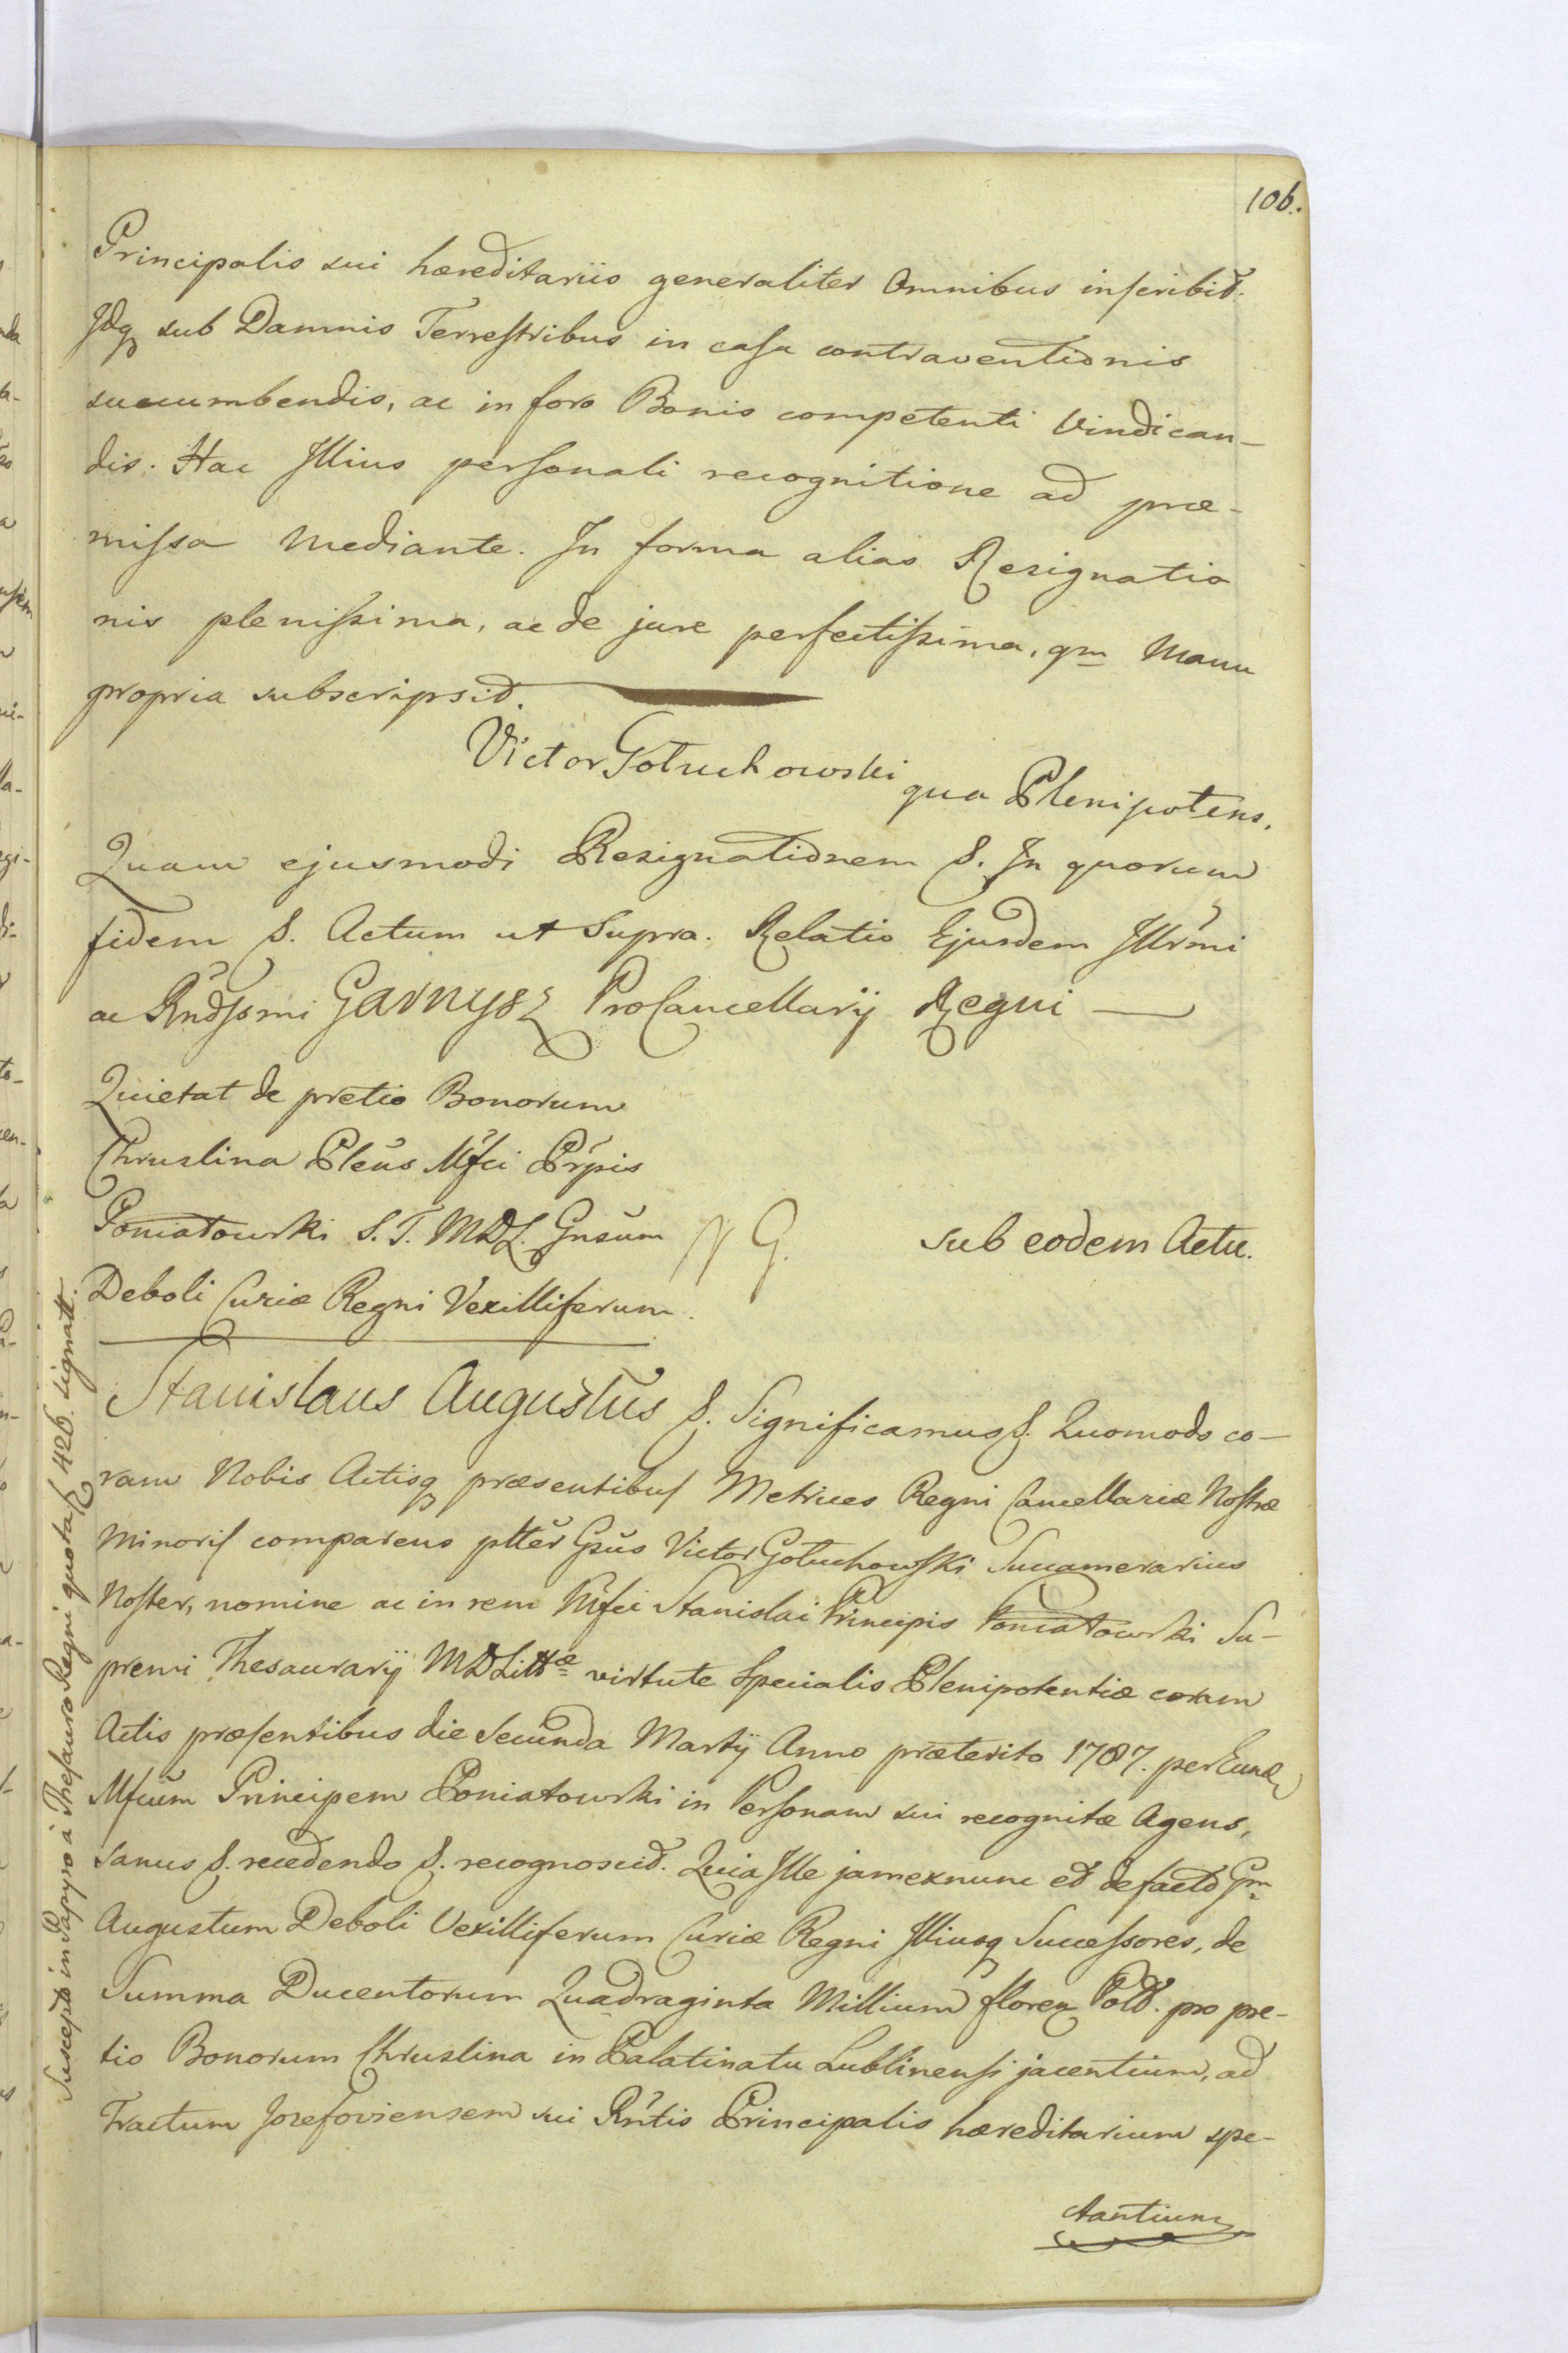 106.
Principalis sui hæreditariis generaliter Omnibus inscribit.
Idq sub Damnis Terrestribus in casu contraventionis
succumbendis, ac in foro Bonis competenti Vindican-
dis. Hac Illius personali recognitione ad præ-
missa Mediante. In forma alias Resignatio
nis plenissima, ac de jure perfectissima, qm Manu
propria subscripsit.
Victor Gołuchowski qua Plenipotens.
Quam ejusmodi Resignationem &. In quorum
fidem &. Actum ut Supra. Relatio Ejusdem Illrmi
ac Rndssmi Garnysz ProCancellarij Regni —
Quietat de pretio Bonorum
Chruslina Pleūs Mfci Prpis
Poniatowski S. T. MDL. Gnsum
Deboli Curiæ Regni Vexilliferum.
NG.
sub eodem Actu.
Stanislaus Augustūs &. Significamus &. Quomodo co-
ram Nobis Actisq præsentibus Metrices Regni Cancellariæ Nostræ
Minoris comparens pltter Gsūs Victor Gołuchowski Succamerarius
Noster, nomine ac in rem Mfci Stanislai Principis Poniatowski Su-
premi Thesaurarij MDLittæ virtute specialis Plenipotentiæ coram
Actis præsentibus die Secūnda Martij Anno præterito 1787. per Eund
Mfcūm Principem Poniatowski in Personam sui recognitæ Agens,
Sanus &. recedendo &. recognoscit. Quia Ille jamexnunc et defacto Gm
Augustum Deboli Vexilliferum Curiæ Regni Illiusq Successores, de
Summa Ducentorum Quadraginta Millium floren Poll. pro pre-
tio Bonorum Chruslina in Palatinatu Lublinensi jacentium, ad
Tractum Josefoviensem sui Rntis Principalis hæreditarium spe-
ctantium
Suscepto in Papyro à Thesauro Regni quota 426. signatt.